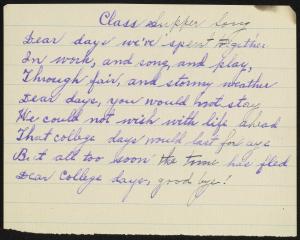 Class Supper Song
Dear days we've spent together
In work, and song, and play,
Through fair, and stormy weather
Dear days, you would not stay
We could not wish with life ahead
That college days would last for aye
But all too soon the time has fled
Dear College days, good bye!